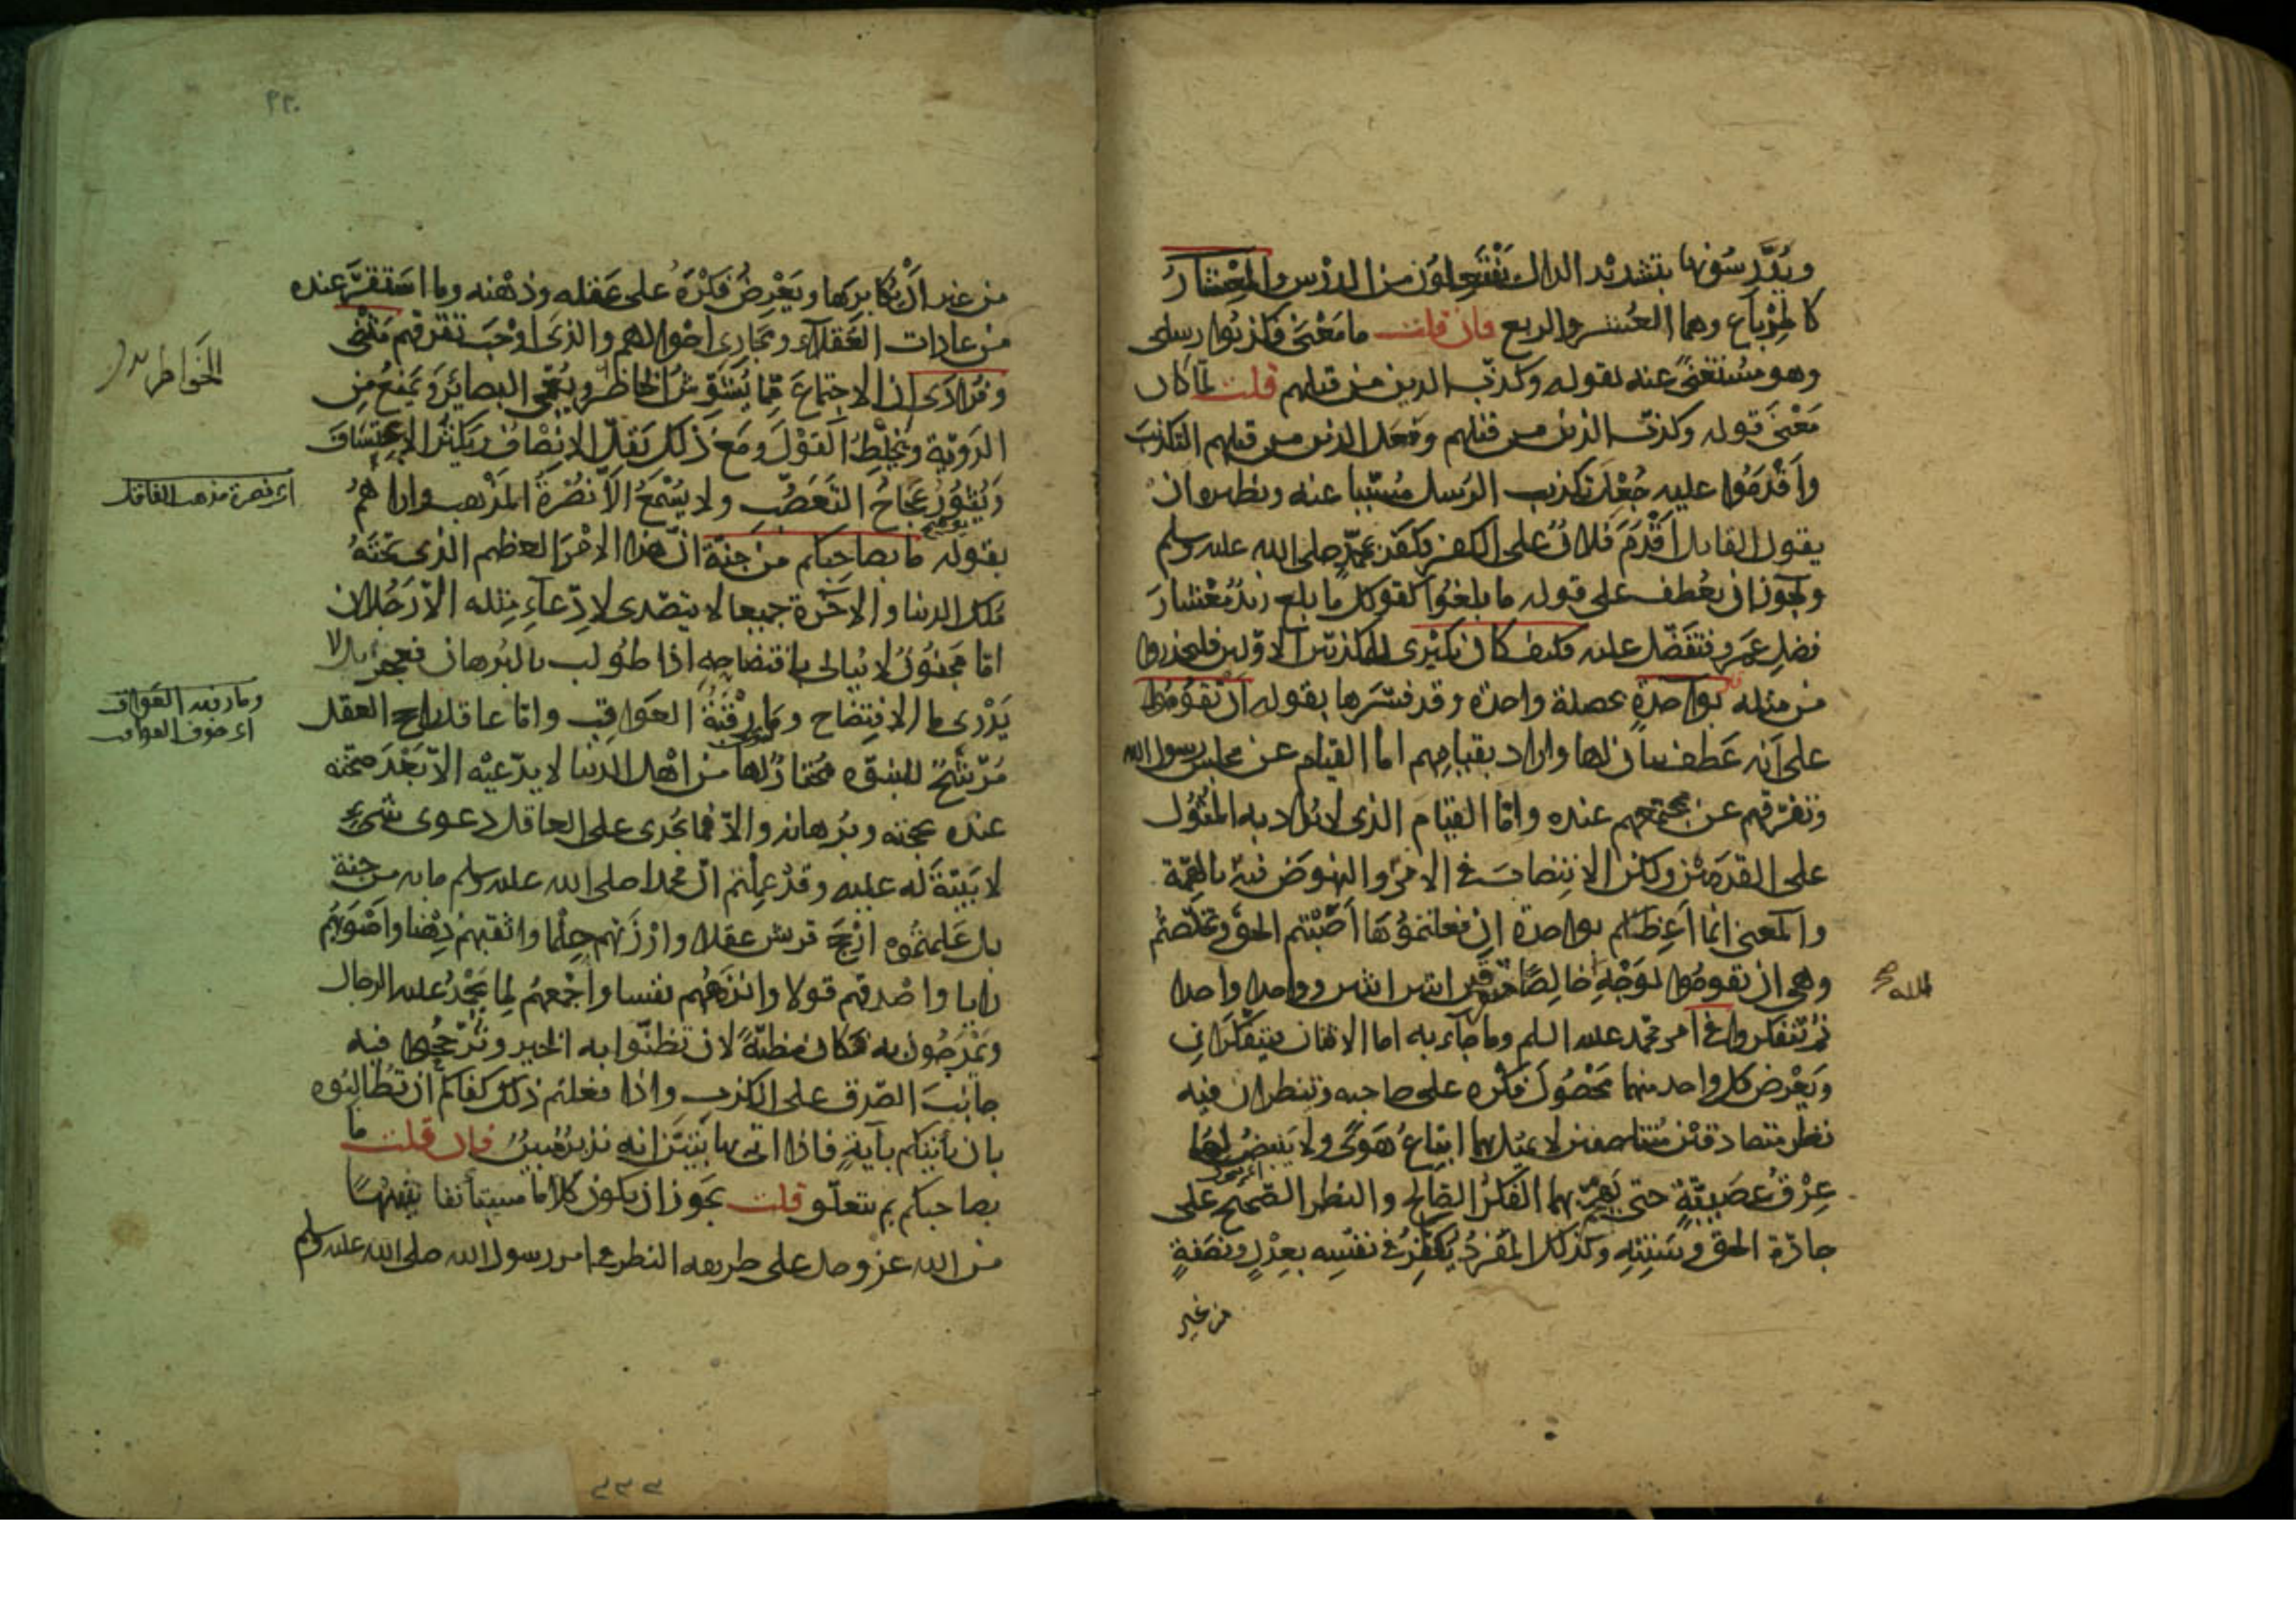 ويدّرسونها بتشديد الدال يفتعلون من الدرس والمعشار
كالمرباع وهما العشر والربع فان قلت ما معنى فكذبوا رسلى
وهو مستغنى عنه بقوله وكذب الذين من قبلهم قلت لما كان
معنى قوله وكذب الذين من قبلهم وفعل الذين من قبلهم التكذيب
واقدموا عليه جعل تكذيب الرسل مسببا عنه ونظيره ان
يقول القايل اقدم فلان على الكفر فكفر بمحمد صلى الله عليه وسلم
ويجوز ان يعطف على قوله ما بلغوا كقولك ما بلغ زيد معشار
فضل عمرو فتفضل عليه فكيف كان نكيرى للمكذبين الاولين فليحذروا
من مثله بواحدة بخصلة واحدة وقد فسرها بقوله ان تقوموا
على انه عطف بيان لها واراد بقيامهم اما القيام عن مجلس رسول الله
وتفرقهم عن مجتمعهم عنده واما القيام الذى لا يراد به المثول
على القدمين ولكن الانتصاب فى الامر والنهوض فيه بالهمة
والمعنى انما اعظكم بواحدة ان فعلتموها اصبتم الحق وتخلصتم
وهى ان تقوموا لوجه خالصا متفرقين اثنين اثنين وواحدا واحدا
الله صح
ثم تتفكروا فى امر محمد عليه السلم وما جاء به اما الاثنان فيتفكران
ويعرض كل واحد منهما محصول فكره على صاحبه وينظران فيه
نظر متصادقين متناصفين لا يميل بهما اتباع هوى ولا ينبض لهما
عرق عصبية حتى يهجم بهما الفكر الصالح والنظر الصحيح على
جادة الحق وسننه وكذلك المفرد يفكر فى نفسه بعدل ونصفة
من غير
٢٢٠
من غير ان يكابرها ويعرض فكره على عقله وذهنه وما استقر عنده
من عادات العقلاء ومجارى احوالهم والذى اوجب تفرقهم مثنى
وفرادى ان الاجتماع مما يشوش الخاطر ويعمى البصائر ويمنع من
الخواطر
الروية ويخلط القول ومع ذلك يقل الانصاف ويكثر الاعتساف
ويثور عجاج التعصب ولا يسمع الا نصرة المذهب واراهم
اى نصرة مذهب القائل
بقوله ما بصاحبكم من جنة ان هذا الامر العظيم الذى تحته
ملك الدنيا والاخرة جميعا لا يتصدى لادعاء مثله الا رجلان
اما مجنون لا يبالى بافتضاحه اذا طولب بالبرهان فعجز بل لا
يدرى ما الافتضاح وما رقبة العواقب واما عاقل راجح العقل
وما رقبه العواقب
اى خوف العواقب
مرشح للنبوة مختار لها من اهل الدنيا لا يدعيه الا بعد صحته
عنده بحجته وبرهانه والا فما يجدى على العاقل دعوى شىء
لا بينة له عليه وقد علمتم ان محمدا صلى الله عليه وسلم ما به من جنة
بل علمتموه ارجح قريش عقلا وارزنهم حلما واثقبهم ذهنا واصوبهم
رايا واصدقهم قولا وانزههم نفسا واجمعهم لما يحمد عليه الرجال
ويمدحون به فكان مظنة لان تظنوا به الخير وترجحوا فيه
جانب الصدق على الكذب واذا فعلتم ذلك كفاكم ان تطالبوه
بان يأتيكم بآية فاذا اتى بها بيتن انه نذير مبين فان قلت ما
بصاحبكم بم يتعلق قلت يجوز ان يكون كلاما مستأنفا تنبيها
من الله عز وجل على طريقه النظر فى امر رسول الله صلى الله عليه وسلم